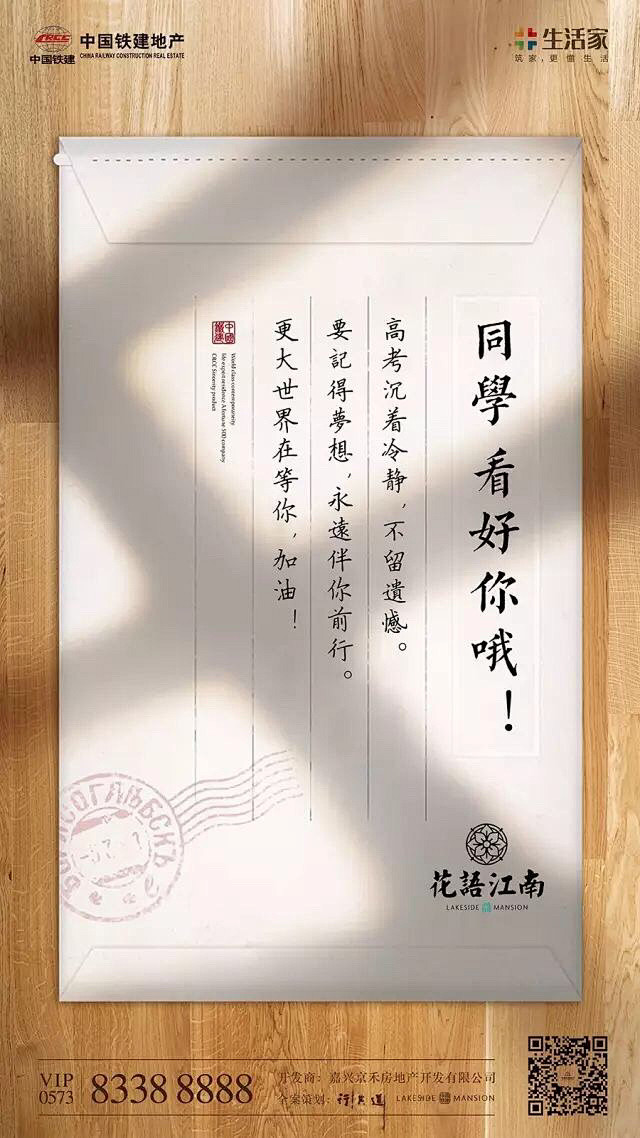 CRCC
中国铁建
中国铁建地产
CHINA RAILWAY CONSTRUCTION REAL ESTATE
生活家
筑家,更懂生活
同學 看好你哦！
高考沉着冷静，不留遺憾。
要記得夢想，永遠伴你前行。
更大世界在等你，加油！
中國
鐵建
World class contemporaneity
CRCC Sincerity product
花語江南
LAKESIDE MANSION
VIP
0573
8338 8888
开发商：嘉兴京禾房地产开发有限公司
全案策划：
LAKESIDE MANSION